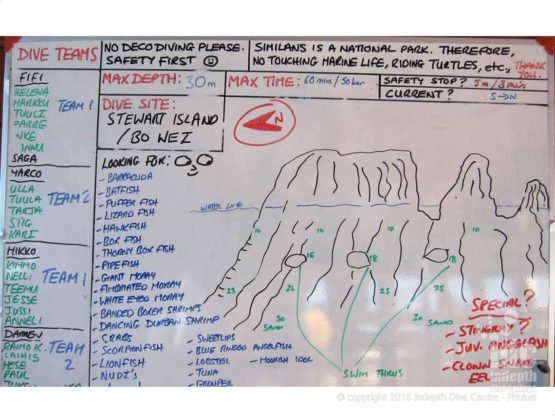 DIVE TEAMS
NO DECO DIVING PLEASE.
SAFETY FIRST
SIMILANS IS A NATIONAL PARK. THEREFORE,
NO TOUCHING MARINE LIFE, RIDING TURTLES, etc., THANK YOU.
MAX DEPTH: 30m
MAX TIME: 60 min / 50 bar
SAFETY STOP? 5m / 3min
CURRENT? S→N
FIFI
HELENA
MARKKU
TUULI
TEAM 1
NKE
INNU
SAGA
MARCO
ULLA
TUULA
TARJA
STIG
KARI
TEAM 2
MIKKO
KIMMO
NELLI
TEEMU
JESSE
JUSSI
ANNELI
TEAM 1
DAMEN
RAIMO K.
LAIHIS
HESE
PAUL
TEAM 2
DIVE SITE:
STEWART ISLAND
/BO NEZ
N
LOOKING FOR:
- BARRACUDA
- BATFISH
- PUFFER FISH
- LIZARD FISH
- HAWKFISH
- BOX FISH
- THORNY BOX FISH
- PIPEFISH
- GIANT MORAY
- FIMBRIATED MORAY
- WHITE EYED MORAY
- BANDED BOXER SHRIMPS
- DANCING DURBAN SHRIMP
- CRABS
- SCORPIONFISH
- LIONFISH
- NUDI'S
- SWEETLIPS
- BLUE RINGED ANGELFISH
- LOBSTER
- MOORISH IDOL
- TUNA
- GROUPER
WATER LINE
10
10
10
16
18
18
25
25
25
30
SAND
30
SAND
SWIM THRUS.
SPECIAL?
- STINGRAY?
- JUV. ANGELFISH
- CLOWN SNAKE
EEL
© copyright 2016 Indepth Dive Centre - Phuket
indepth